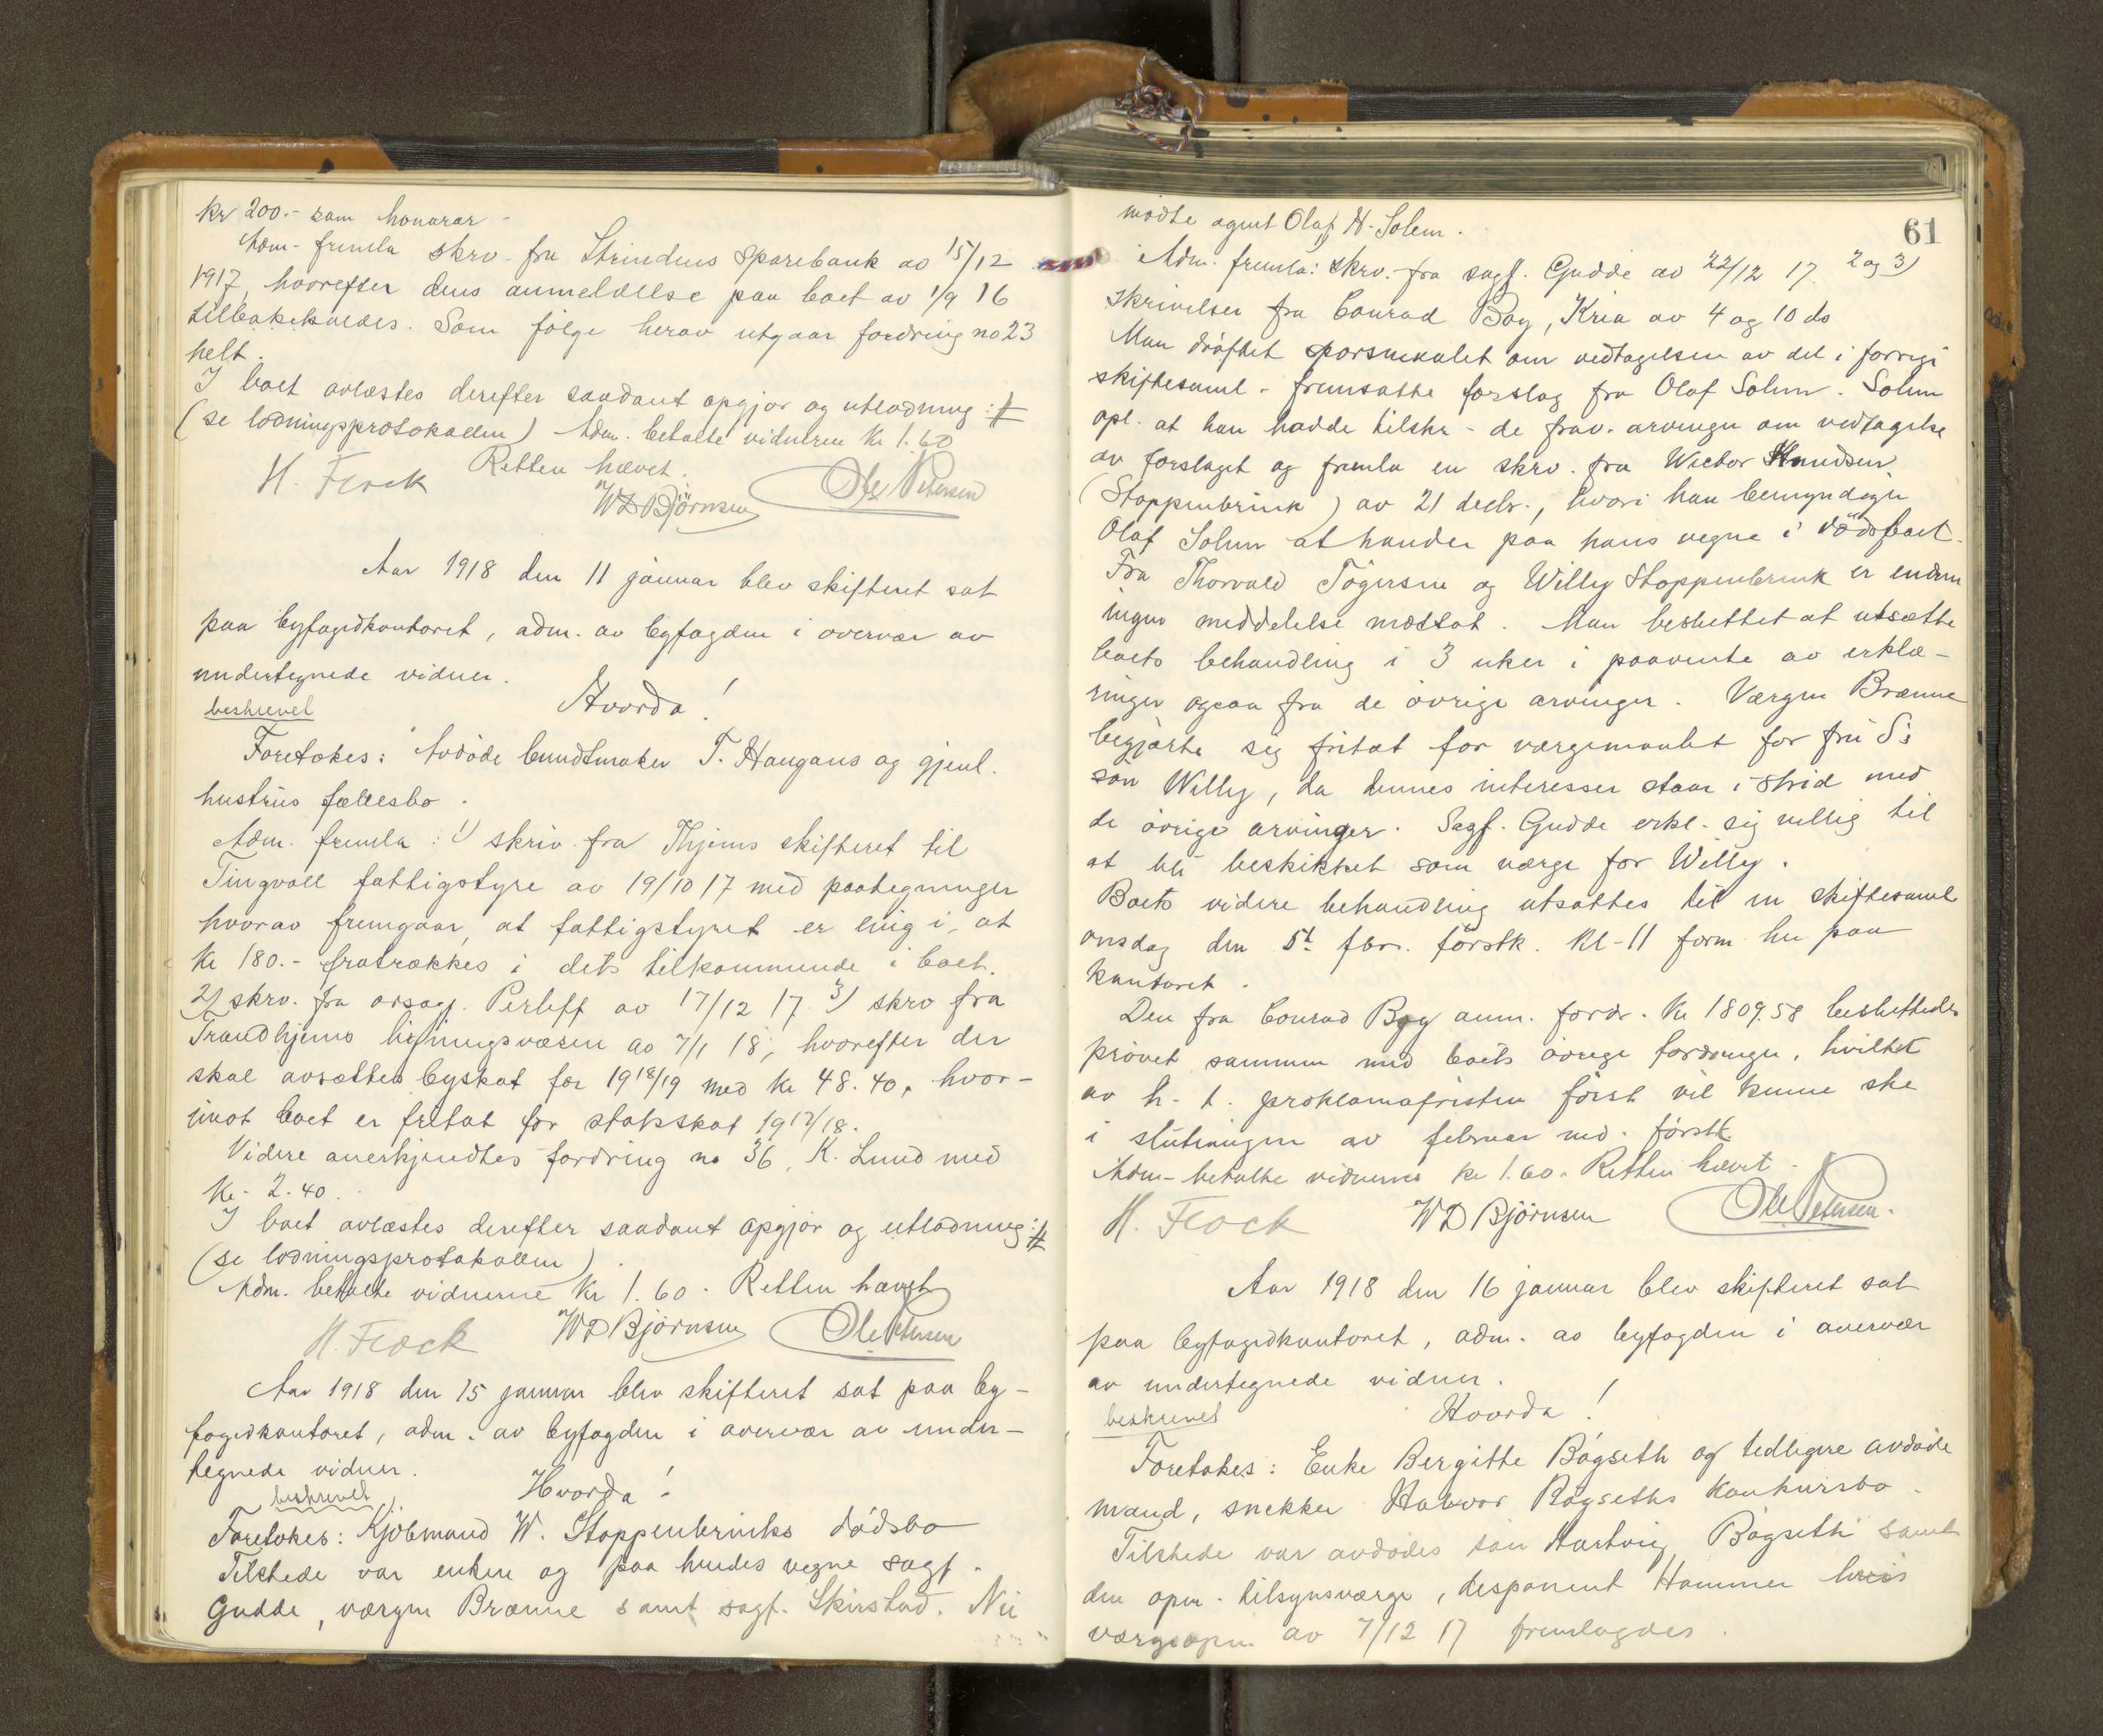 kr 200.- som honorar -
Adm. fremla skrv. fra Strindens Sparebank av 15/12
1917, hvorefter dens anmeldelse paa boet av 1/9 16
tilbakekaldes. Som følge herav utgaar fordring no 23
helt.
I boet avlæstes derefter saadant opgjør og utlodning: #
(se lodningsprotokollen) Adm. betalte vidnerne kr 1.60
Retten hævet.
H. Flock WD Bjørnsen Ole Petersen
Aar 1918 den 11 januar blev skifteret sat
paa byfogdkontoret, adm. av byfogden i overvær av
undertegnede vidner.
beskrevet Hvorda!
Foretokes: Avdøde bundtmaker T. Haugans og gjenl.
hustrus fællesbo.
Adm. fremla: 1) skriv. fra Thjems skifteret til
Tingvoll fattigstyre av 19/10 17 med paategninger
hvorav fremgaar, at fattigstyret er enig i, at
kr 180.- fratrækkes i dets tilkommende i boet.
2) skrv. fra orsagf. Perleff av 17/12 17. 3) skrv fra
Trondhjems ligningsvæsen av 7/1 18, hvorefter der
skal avsættes byskat for 1918/19 med kr 48.40, hvor-
imot boet er fritat for statsskat 1917/18.
Videre anerkjendtes fordring no 36, K. Lund med
kr. 2.40.
I boet avlæstes derefter saadant opgjør og utlodning: #
(se lodningsprotokollen).
Adm. betalte vidnerne kr 1.60. Retten hævet
H. Flock WD Bjørnsen Ole Petersen
Aar 1918 den 15 januar blev skifteret sat paa by-
fogdkontoret, adm. av byfogden i overvær av under-
tegnede vidner.
beskrevet Hvorda!
Foretokes: Kjøbmand W. Stoppenbrinks dødsbo
Tilstede var enken og paa hendes vegne sagf.
Gudde,værgen Brænne samt sagf. Skirstad. Nu
61
mødte agent Olaf H. Solem.
Adm. fremla: 1) skrv. fra sagf. Gudde av 22/12 17 2 og 3)
skrivelser fra Conrad Boy, Kria av 4 og 10 ds
Man drøftet spørsmaalet om vedtagelsen av det i forrige
skiftesaml. fremsatte forslag fra Olaf Solem. Solem
opl. at han hadde tilskr. de frav. arvinger om vedtagelse
av forslaget og fremla en skrv. fra Victor Knudsen
(Stoppenbrink) av 21 decbr., hvori han bemyndiger
Olaf Solem at handle paa hans vegne i dødsboet.
Fra Thorvald Tøgersen og Willy Stoppenbrink er endnu
ingen meddelelse mottat. Man besluttet at utsætte
boets behandling i 3 uker i paavente av erklæ-
ringer ogsaa fra de øvrige arvinger. Værgen Brænne
begjærte sig fritat for værgemaalet for fru S:s
søn Willy, da dennes interesser staar i strid med
de øvrige arvinger. Sagf. Gudde erkl. sig villig til
at bli beskikket som værge for Willy.
Boets videre behandling utsattes til en skiftesaml.
onsdag den 5t febr. førstk. kl. 11 form. her paa
kontoret.
Den fra Conrad Boy anm. fordr. kr 1809.58 besluttedes
prøvet sammen med boets øvrige fordringer, hvilket
av h. t. proklamafristen først vil kunne ske
i slutningen av februar md. førstk
Adm. betalte vidnerne kr 1.60. Retten hævet.
H. Flock WD Bjørnsen Ole Petersen.
Aar 1918 den 16 januar blev skifteret sat
paa byfogdkontoret, adm. av byfogden i overvær
av undertegnede vidner.
beskrevet Hvorda!
Foretokes: Enke Bergitte Bøgseth og tidligere avdøde
mand, snekker Halvor Bøgseths konkursbo.
Tilstede var avdødes søn Hartvig Bøgseth samt
den opn. tilsynsværge, disponent Hammer hvis
værgeopn. av 7/12 17 fremlagdes.